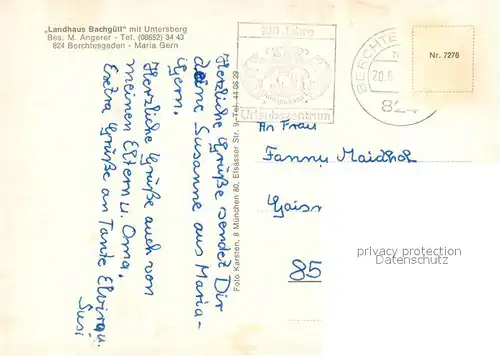 „Landhaus Bachgütl" mit Untersberg
Bes. M. Angerer - Tel. (08652) 34 43
824 Berchtesgaden - Maria Gern
Herzliche Grüße sendet Dir
deine Susanne aus Maria-
Gern.
Herzliche Grüße auch von
meinen Eltern u. Oma.
Extra Grüße an Tante Elvira u.
Susi
Foto Karsten, 8 München 80, Elsässer Str. 9, Tel. 44 86 29
100 Jahre
Urlaubszentrum
BERCHTE
20.8
824
Nr. 7276
An Frau
Fanny Maidhof
Gais
85
privacy protection
Datenschutz